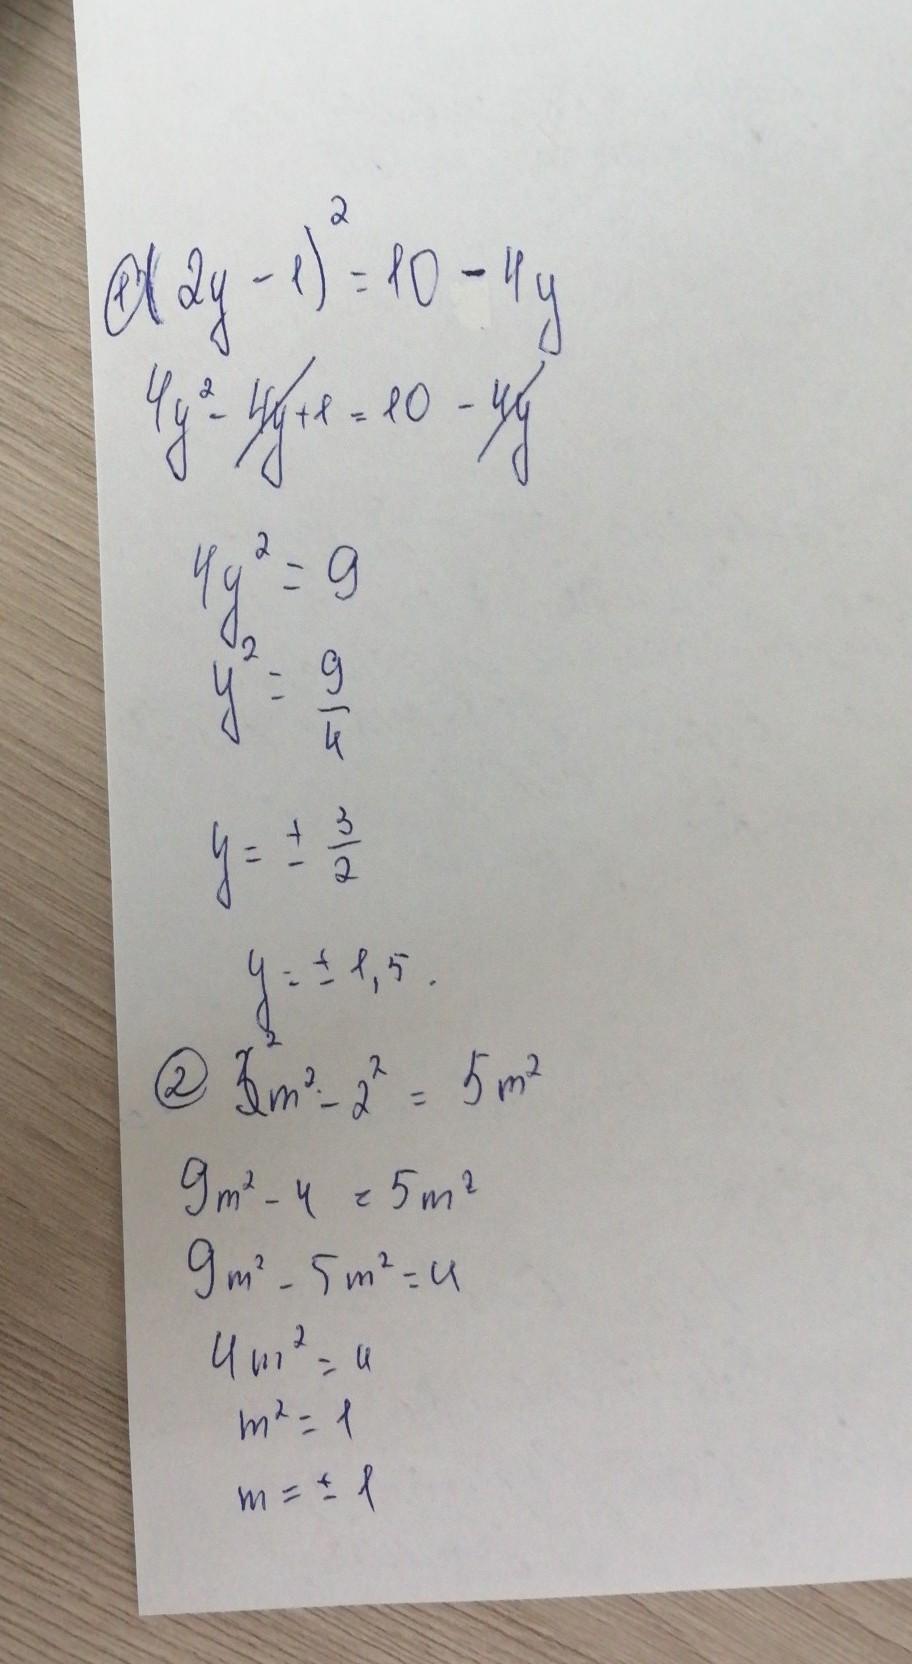 ① (2y - 1)² = 10 - 4y
4y² - 4y + 1 = 10 - 4y
4y² = 9
y² = 9/4
y = ± 3/2
y = ± 1,5.
② 3²m² - 2² = 5m²
9m² - 4 = 5m²
9m² - 5m² = 4
4m² = 4
m² = 1
m = ± 1